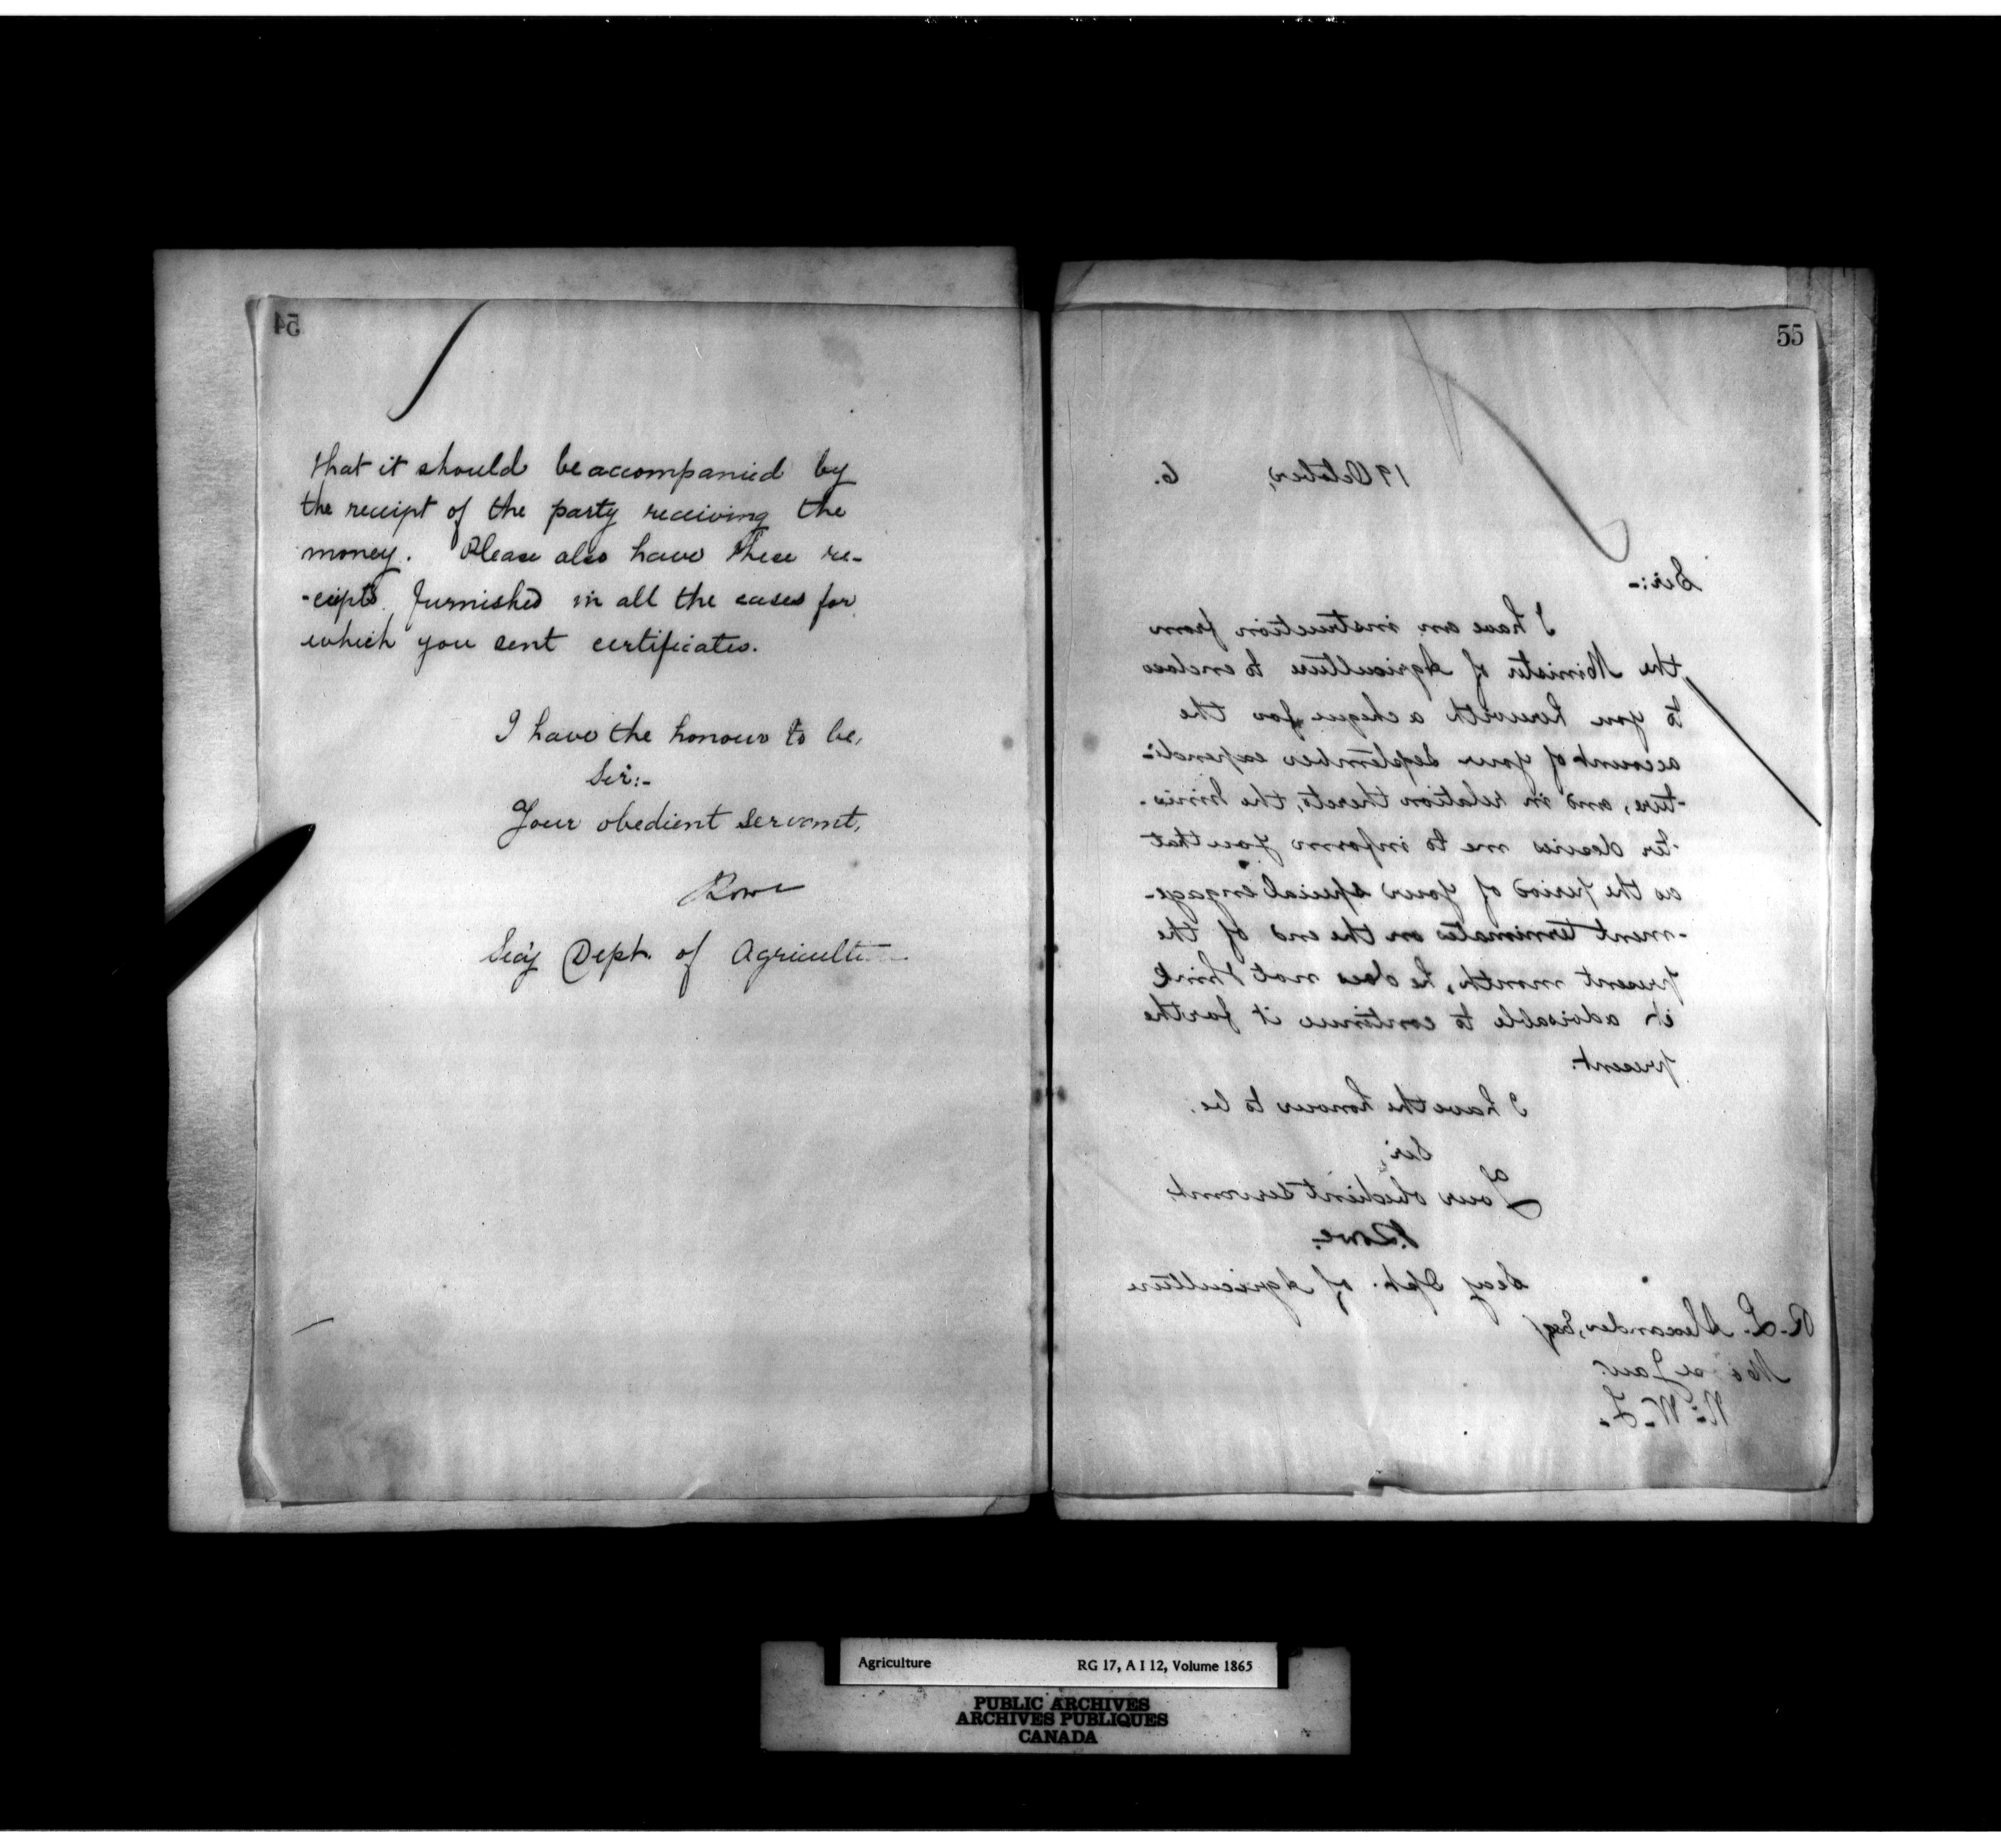 54
that it should be accompanied by
the receipt of the party receiving the
money. Please also have these re-
-ceipts furnished in all the cases for
which you sent certificates.
I have the honour to be,
Sir:-
Your obedient servant,
Lowe
Secy Dept. of Agriculture
55
19 October, 6.
Sir:-
I have an instruction from
the Minister of Agriculture to enclose
to you herewith a cheque for the
account of your September expendi-
-ture, and in relation thereto, the Minis-
-ter desires me to inform you that
as the period of your special engage-
-ment terminates on the end of the
present month, he does not think
it advisable to continue it for the
present.
I have the honour to be.
Sir,
Your obedient servant
J. Lowe.
Secy Dept. of Agriculture
R. L. Alexander, Esq
Moose Jaw.
N. W. T.
Agriculture RG 17, A I 12, Volume 1865
PUBLIC ARCHIVES
ARCHIVES PUBLIQUES
CANADA